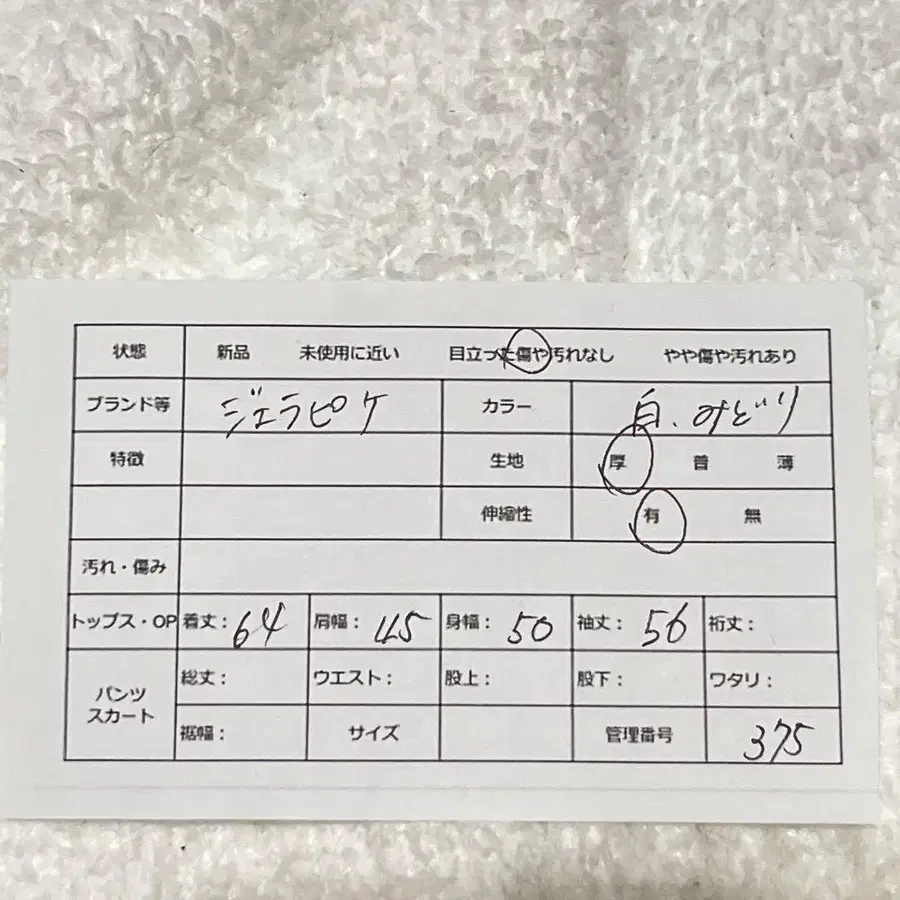 状態 新品 未使用に近い 目立った傷や汚れなし やや傷や汚れあり
ブランド等 ジェラピケ カラー 白、みどり
特徴 生地 厚 普 薄
伸縮性 有 無
汚れ・傷み
トップス・OP 着丈：64 肩幅：45 身幅：50 袖丈：56 裄丈：
パンツ
スカート
総丈： ウエスト： 股上： 股下： ワタリ：
裾幅： サイズ 管理番号 375